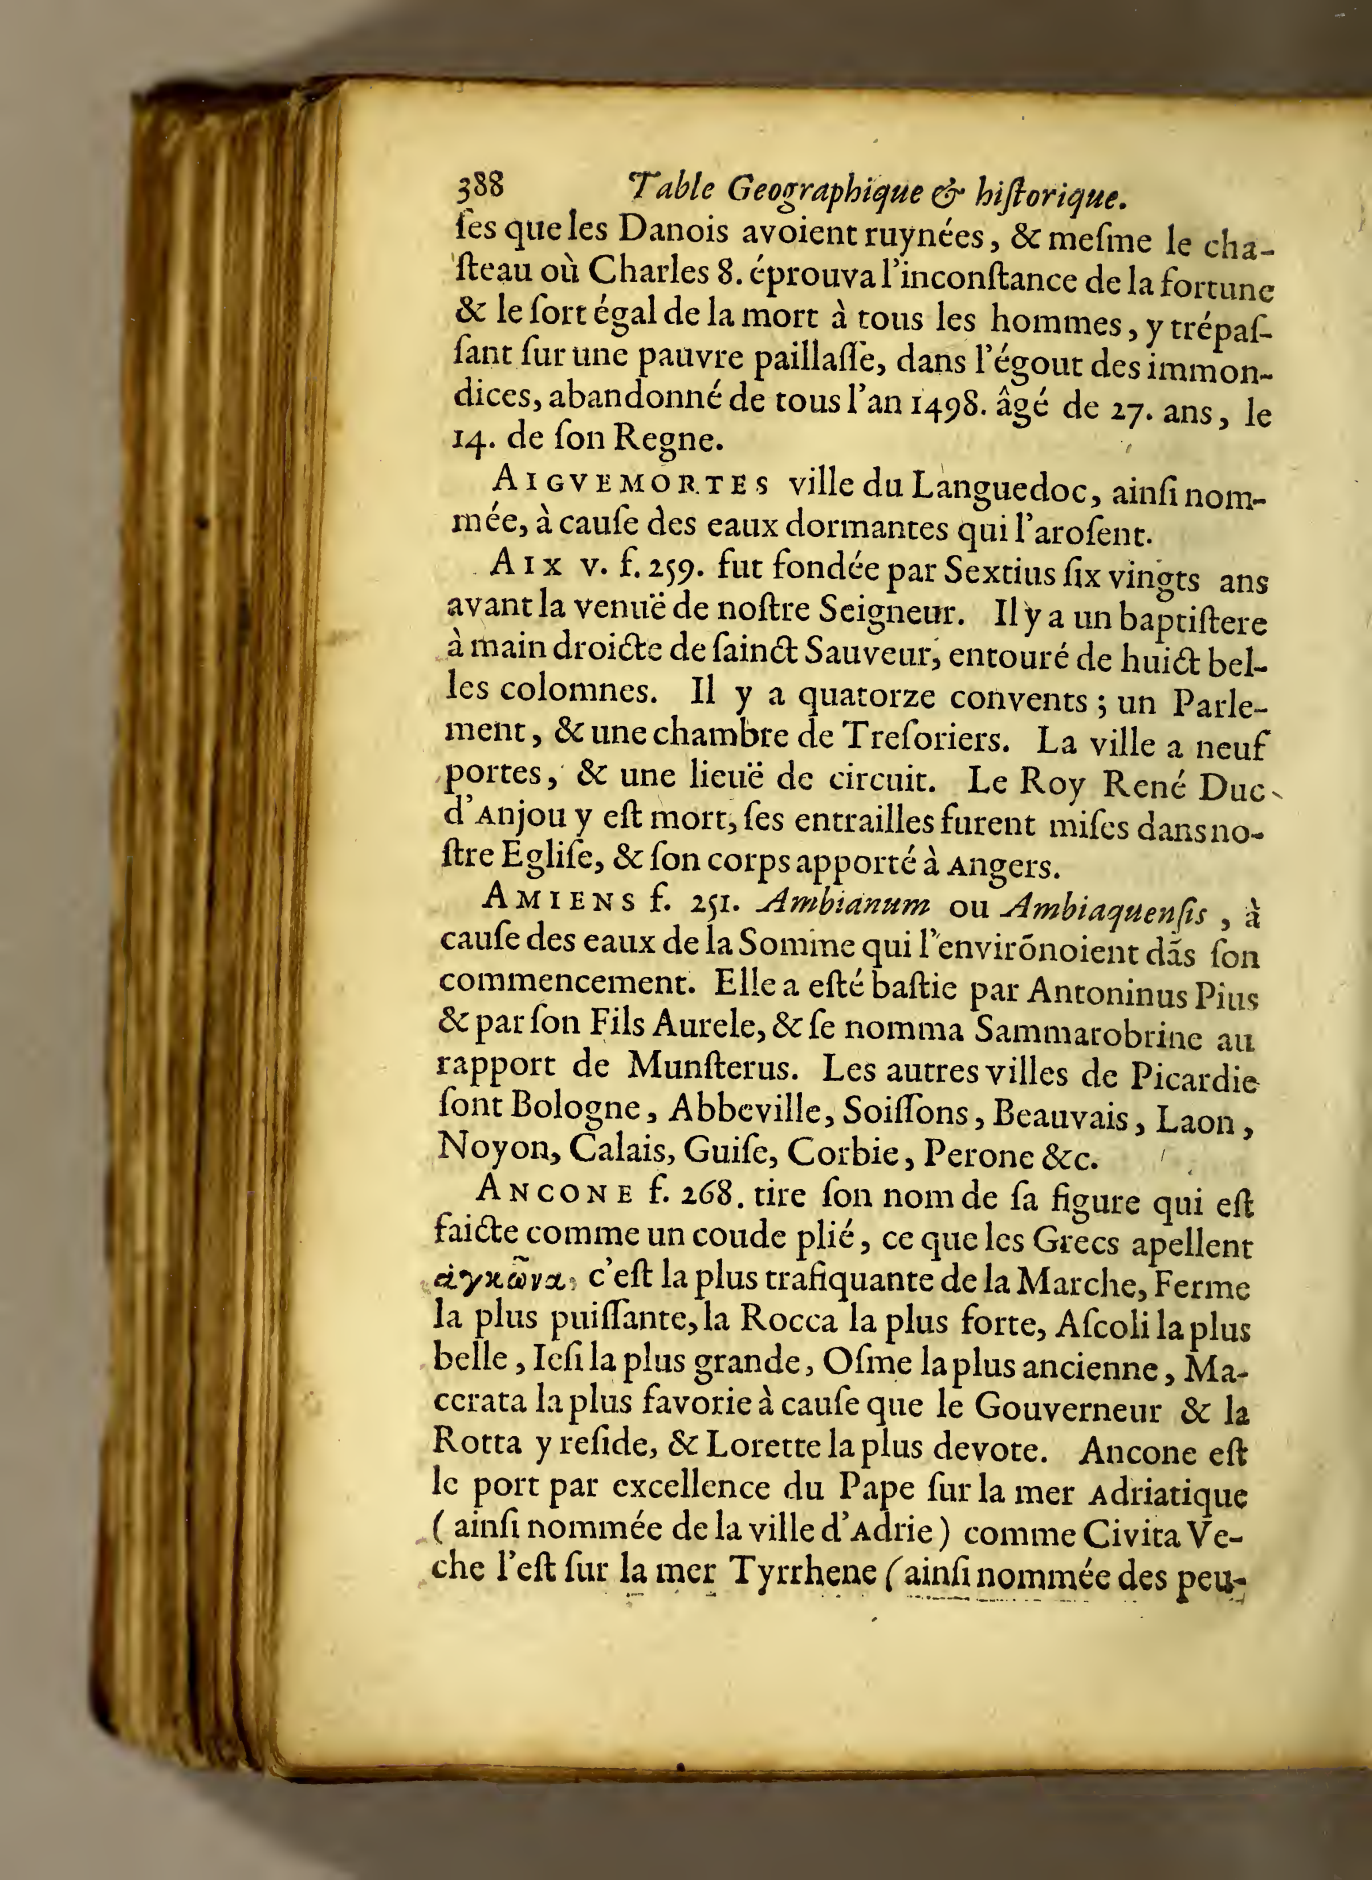 388 Table Geographique & hiſtorique.
ſes que les Danois avoient ruynées, & meſme le cha-
ſteau où Charles 8. éprouva l'inconſtance de la fortune
& le ſort égal de la mort à tous les hommes, y trépaſ-
ſant ſur une pauvre paillaſſe, dans l'égout des immon-
dices, abandonné de tous l'an 1498. âgé de 27. ans, le
14. de ſon Regne.
AIGVEMORTES ville du Languedoc, ainſi nom-
mée, à cauſe des eaux dormantes qui l'aroſent.
AIX v. f. 259. fut fondée par Sextius ſix vingts ans
avant la venuë de noſtre Seigneur. Il y a un baptiſtere
à main droicte de ſainct Sauveur, entouré de huict bel-
les colomnes. Il y a quatorze convents ; un Parle-
ment, & une chambre de Treſoriers. La ville a neuf
portes, & une lieuë de circuit. Le Roy René Duc
d'Anjou y eſt mort, ſes entrailles furent miſes dans no-
ſtre Egliſe, & ſon corps apporté à Angers.
AMIENS f. 251. Ambianum ou Ambiaquenſis, à
cauſe des eaux de la Somme qui l'envirõnoient dãs ſon
commencement. Elle a eſté baſtie par Antoninus Pius
& par ſon Fils Aurele, & ſe nomma Sammarobrine au
rapport de Munſterus. Les autres villes de Picardie
ſont Bologne, Abbeville, Soiſſons, Beauvais, Laon,
Noyon, Calais, Guiſe, Corbie, Perone &c.
ANCONE f. 268. tire ſon nom de ſa figure qui eſt
faicte comme un coude plié, ce que les Grecs apellent
ἀγκῶνα, c'eſt la plus trafiquante de la Marche, Ferme
la plus puiſſante, la Rocca la plus forte, Aſcoli la plus
belle, Ieſi la plus grande, Oſme la plus ancienne, Ma-
cerata la plus favorie à cauſe que le Gouverneur & la
Rotta y reſide, & Lorette la plus devote. Ancone eſt
le port par excellence du Pape ſur la mer Adriatique
( ainſi nommée de la ville d'Adrie ) comme Civita Ve-
che l'eſt ſur la mer Tyrrhene ( ainſi nommée des peu-